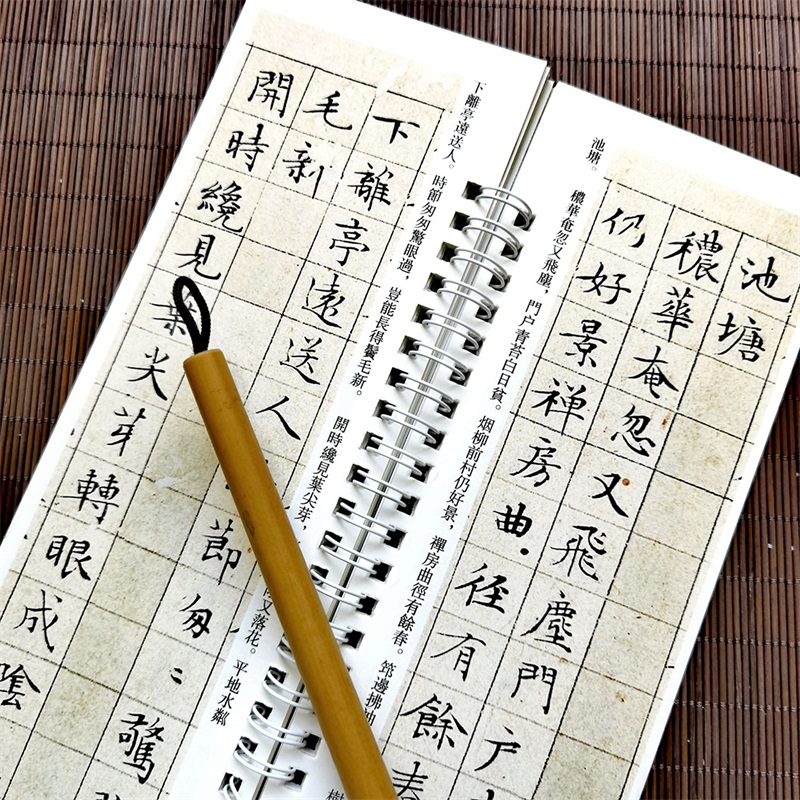 池塘。
穠華奄忽又飛塵，門户青苔白日貧。烟柳前村仍好景，禪房曲徑有餘春。筇邊拂
池塘
穠華奄忽又飛塵門户
仍好景禅房曲径有餘春
下離亭遠送人。時節匆匆驚眼過，豈能長得鬢毛新。
開時纔見葉尖芽，又落花。平地水粼
下離亭遠送人節匆〻驚
毛新
開時纔見葉尖芽轉眼成陰